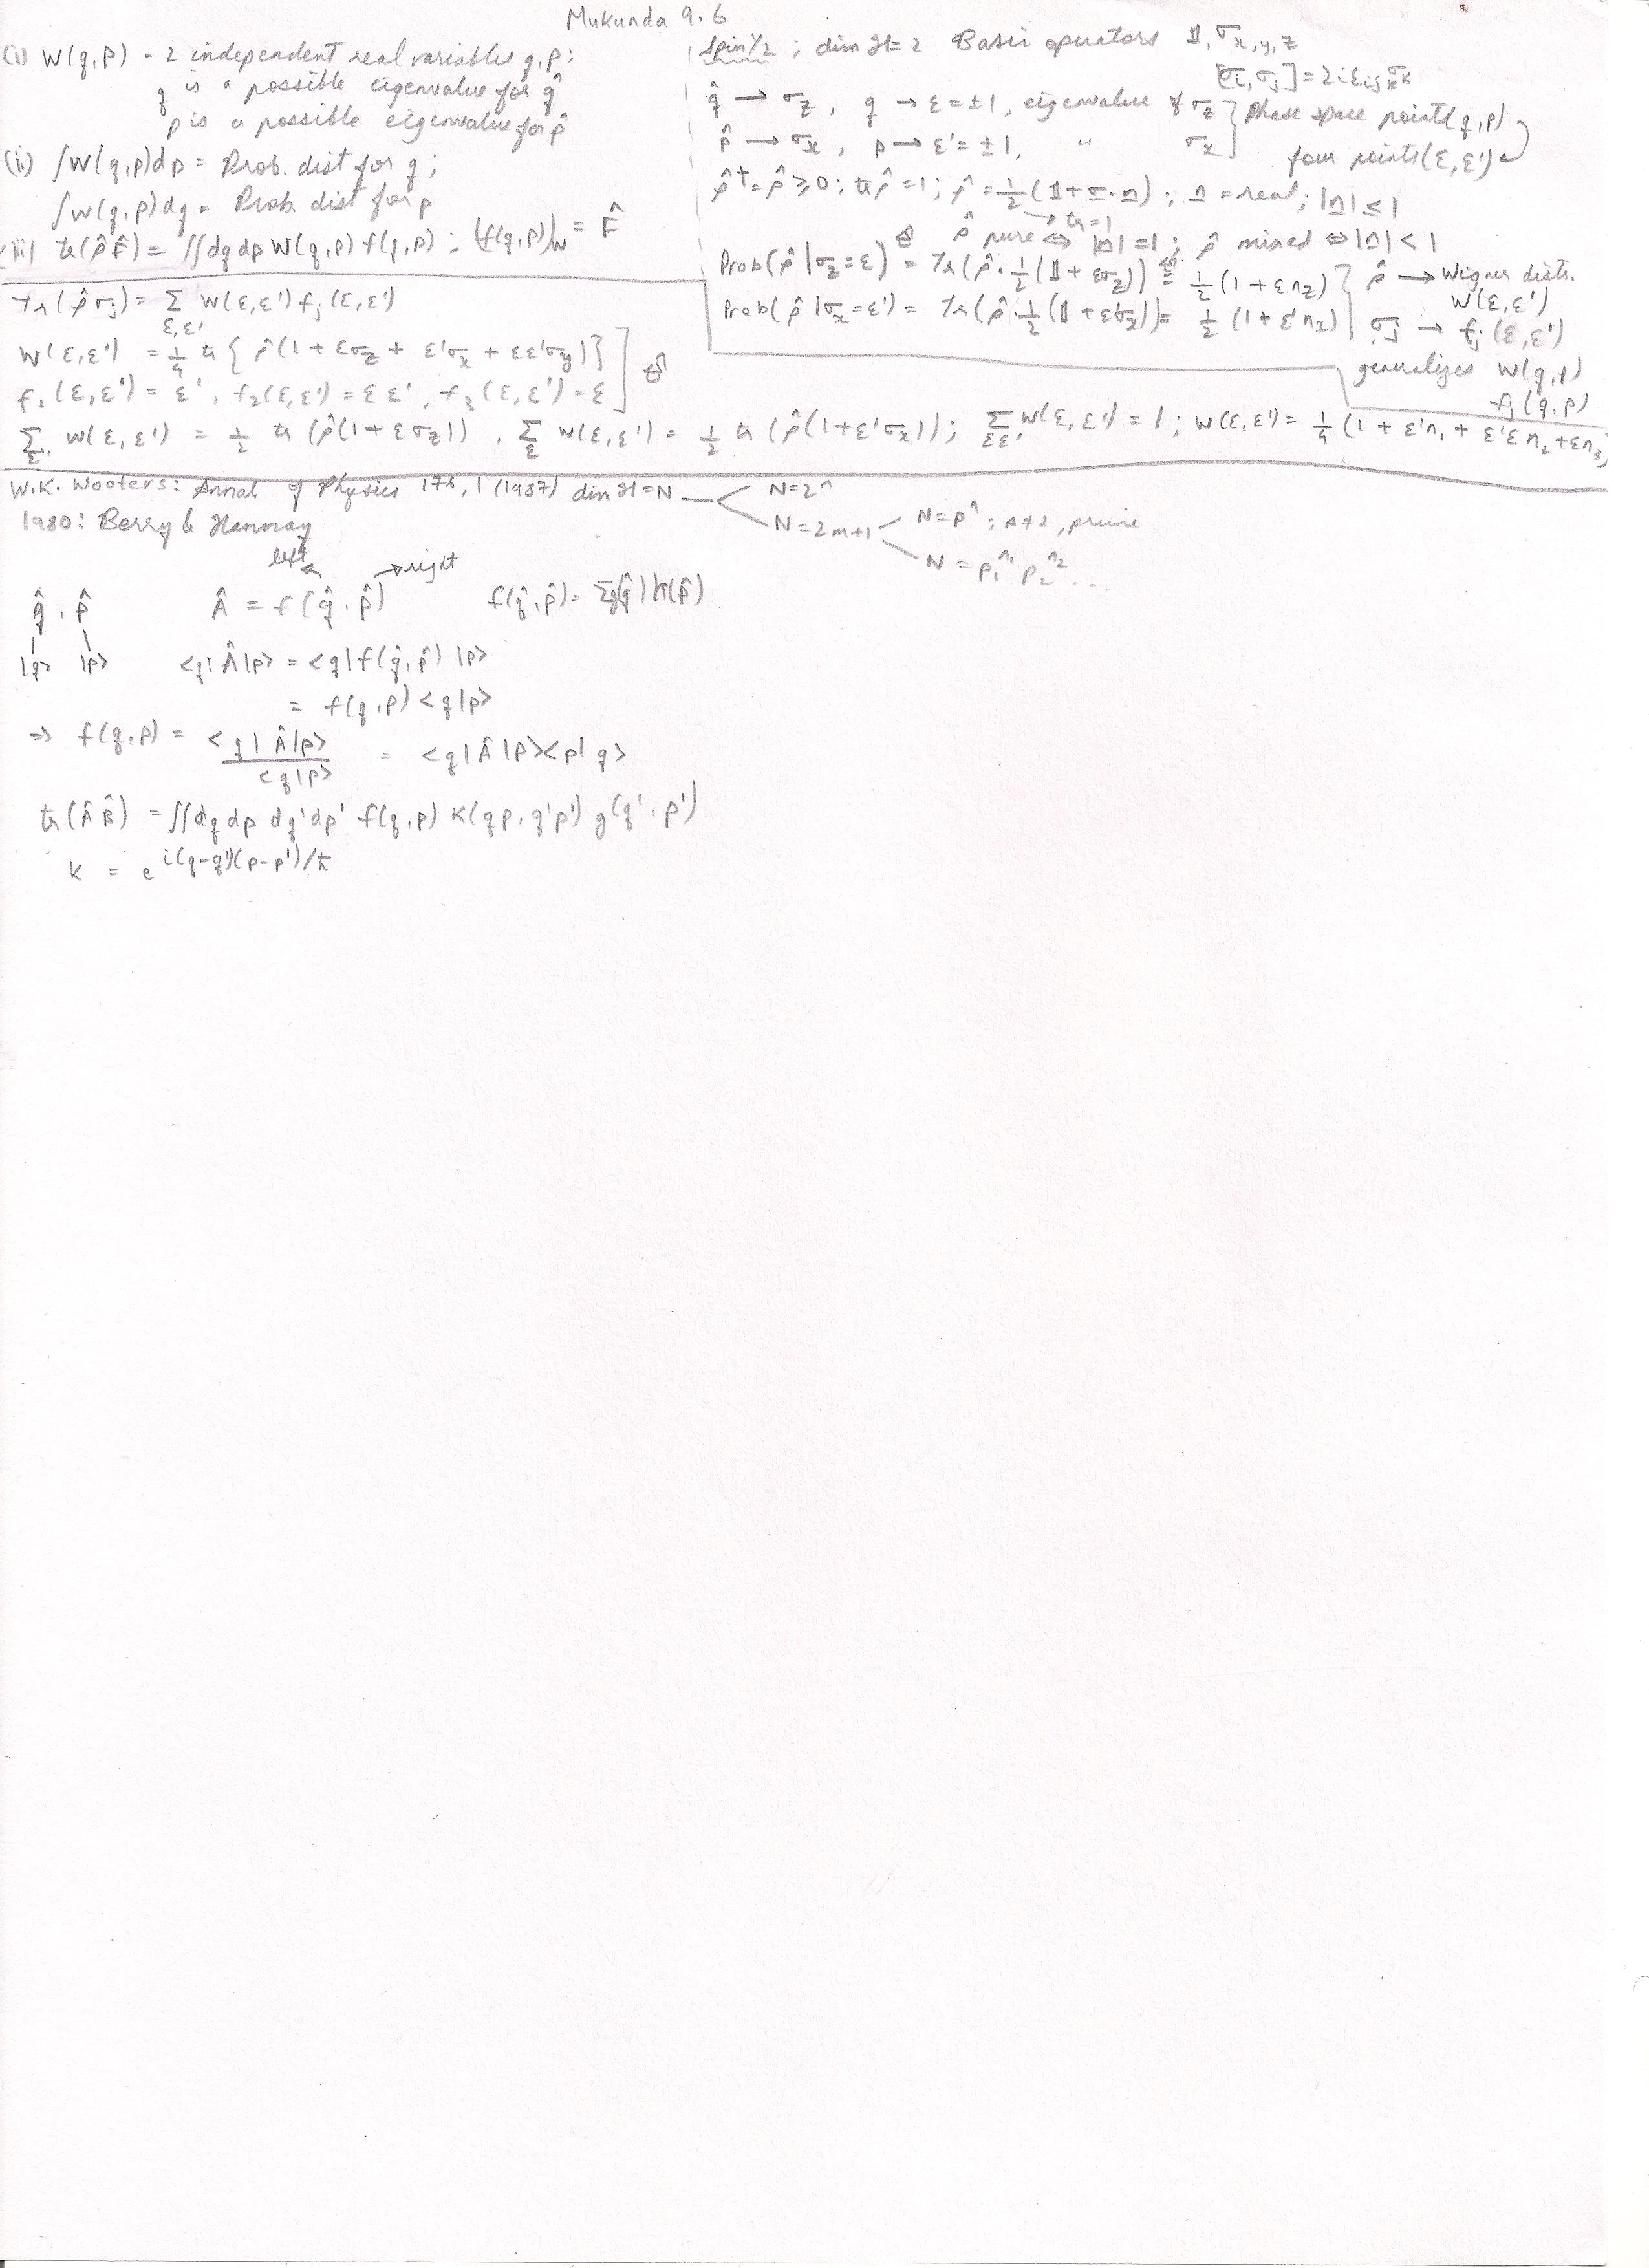 Mukunda 9.6
(i) W(q,p) - 2 independent real variables q,p;
q is a possible eigenvalue for q̂
p is a possible eigenvalue for p̂
(ii) ∫W(q,p)dp = Prob. dist for q;
∫W(q,p)dq = Prob. dist for p
(iii) tr(ρ̂F̂) = ∫∫dq dp W(q,p) f(q,p); (f(q,p))_W = F̂
Spin 1/2; dim ℋ = 2 Basic operators 𝟙, σx,y,z
[σi,σj] = 2iεijkσk
q̂ → σz, q → ε = ±1, eigenvalue of σz } Phase space point (q,p)
p̂ → σx, p → ε' = ±1, " σx } four points (ε,ε')
ρ̂† = ρ̂ ≥ 0; tr ρ̂ = 1; ρ̂ = 1/2(𝟙 + σ·n); n = real; |n| ≤ 1
→ tr = 1
ρ̂ pure ⇔ |n| = 1; ρ̂ mixed ⇔ |n| < 1
Prob(ρ̂|σz=ε) = Tr(ρ̂·1/2(𝟙+εσz)) = 1/2(1+εnz) } ρ̂ → Wigner distr.
W(ε,ε')
Prob(ρ̂|σx=ε') = Tr(ρ̂·1/2(𝟙+ε'σx)) = 1/2(1+ε'nx) σj → fj(ε,ε')
generalizes W(q,p)
fj(q,p)
Tr(ρ̂σj) = Σ_{ε,ε'} W(ε,ε') fj(ε,ε')
W(ε,ε') = 1/4 tr{ρ̂(1+εσz + ε'σx + εε'σy)}
f1(ε,ε') = ε', f2(ε,ε') = εε', f3(ε,ε') = ε
Σ_{ε'} W(ε,ε') = 1/2 tr(ρ̂(1+εσz)), Σ_ε W(ε,ε') = 1/2 tr(ρ̂(1+ε'σx)); Σ_{εε'} W(ε,ε') = 1; W(ε,ε') = 1/4(1 + ε'n1 + ε'εn2 + εn3)
W.K. Wooters: Annal of Physics 176, 1 (1987) dim ℋ = N N=2^n
1980: Berry & Hannay N=2m+1 N=p^n; p≠2, prime
N = p1^n1 p2^n2 ...
left → right
q̂, p̂ Â = f(q̂,p̂) f(q̂,p̂) = Σg(q̂)h(p̂)
|q> |p> <q|Â|p> = <q|f(q̂,p̂)|p>
= f(q,p)<q|p>
⇒ f(q,p) = <q|Â|p>/<q|p> = <q|Â|p><p|q>
tr(ÂB̂) = ∫∫dq dp dq'dp' f(q,p) K(qp,q'p') g(q',p')
K = e^{i(q-q')(p-p')/ħ}